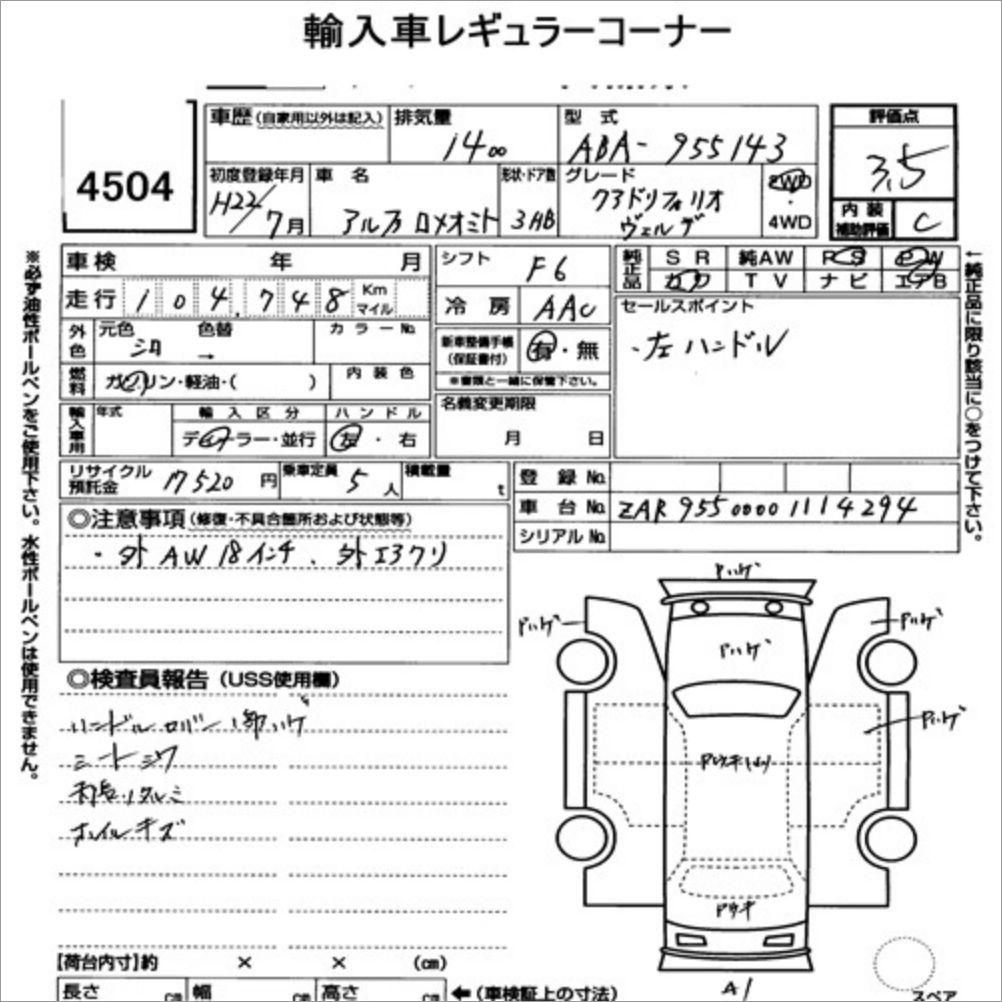 輸入車レギュラーコーナー
4504
車歴(自家用以外は記入)
排気量
1400
型式
ABA-955143
評価点
3.5
初度登録年月
H22/7月
車名
アルファロメオミト
形状・ドア数
3HB
グレード
ヴェルデ
2WD
・
4WD
内装
補助評価
C
車検 年 月
シフト
F6
純正品
SR 純AW PS PW
カワ TV ナビ エアB
走行 104,748 Km マイル
冷房
AAC
セールスポイント
・左ハンドル
外色
元色
シロ
色替
→
カラーNo.
新車整備手帳
(保証書付)
有・無
※書類と一緒に保管下さい。
燃料
ガソリン・軽油・( )
内装色
名義変更期限
月 日
輸入車用
年式
輸入区分
ディーラー・並行
ハンドル
左・右
リサイクル
預託金
17520円
乗車定員
5人
積載量
t
登録No.
車台No.
ZAR95500001114294
シリアルNo.
◎注意事項(修復・不具合箇所および状態等)
・外AW18インチ、外エアクリ
◎検査員報告(USS使用欄)
シートシワ
ホイルキズ
[荷台内寸]約 × × (cm)
長さ cm 幅 cm 高さ cm ←(車検証上の寸法)
※必ず油性ボールペンをご使用下さい。水性ボールペンは使用できません。
←純正品に限り該当に○をつけて下さい。
Pハゲ
Pハゲ
Pハゲ
Pハゲ
Pハゲ
Pウキ
A1
スペア